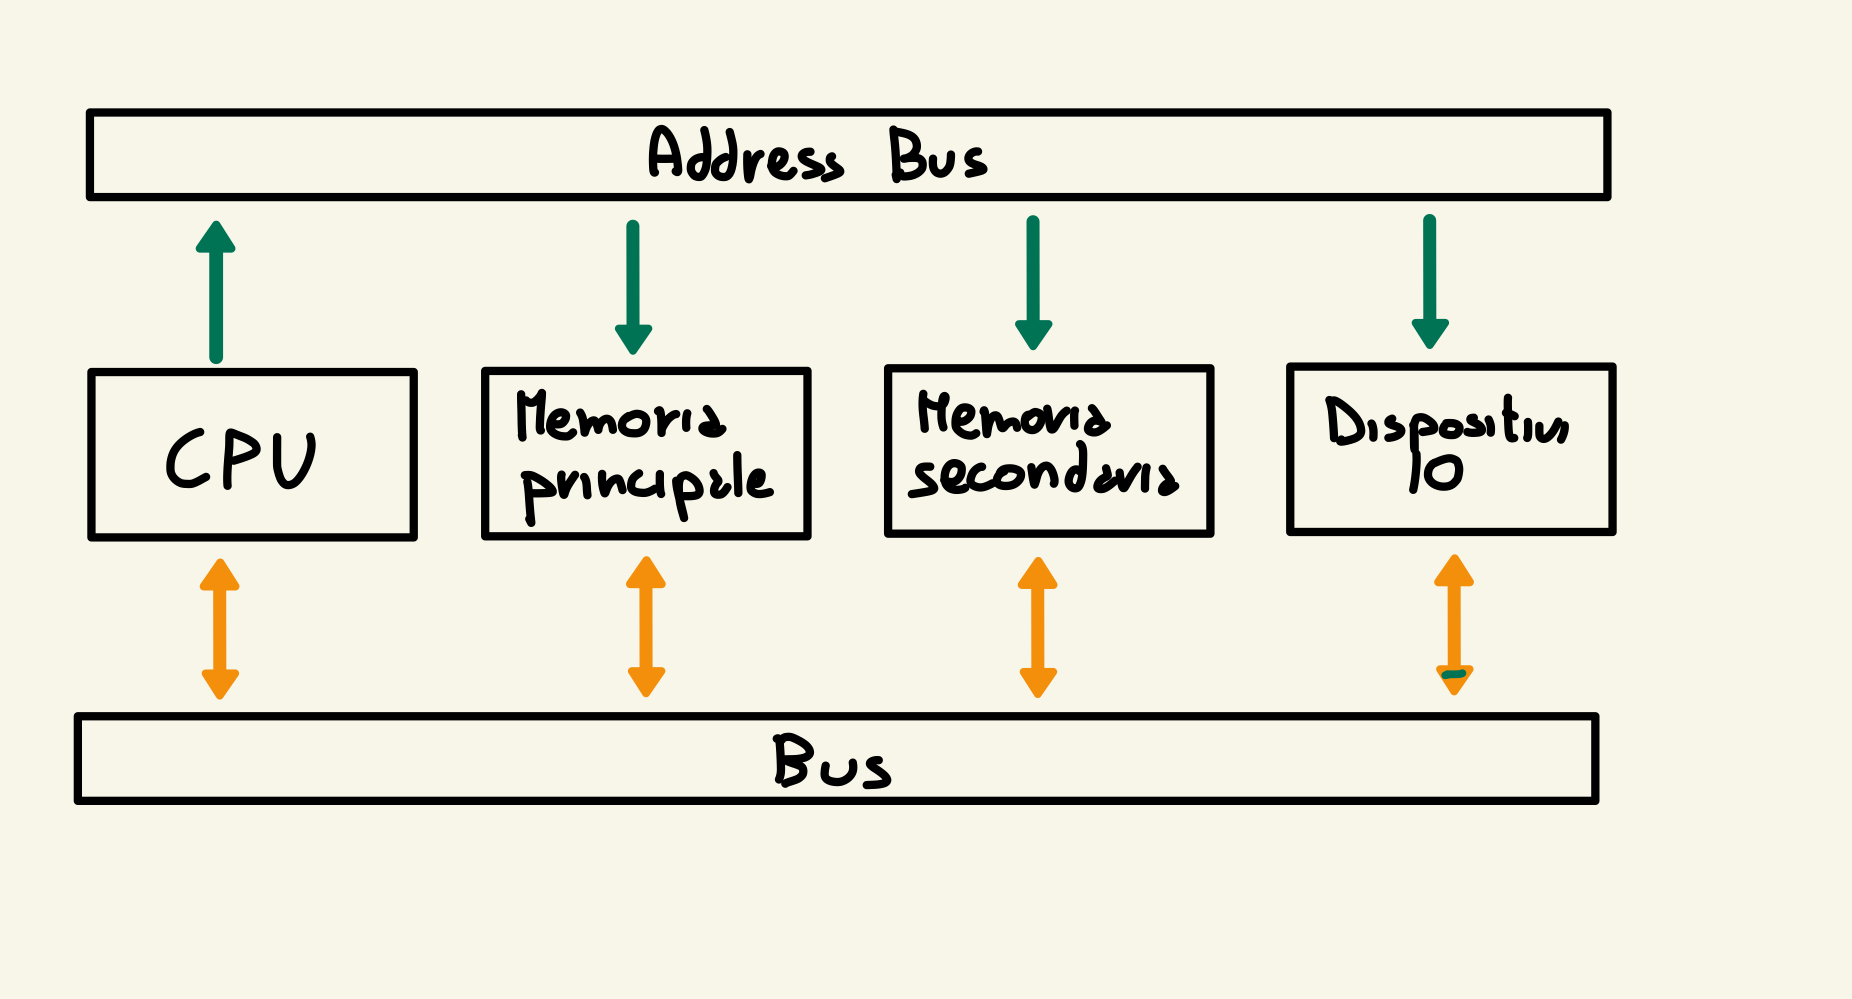 Address Bus
CPU
Memoria
principale
Memoria
secondaria
Dispositivi
IO
Bus